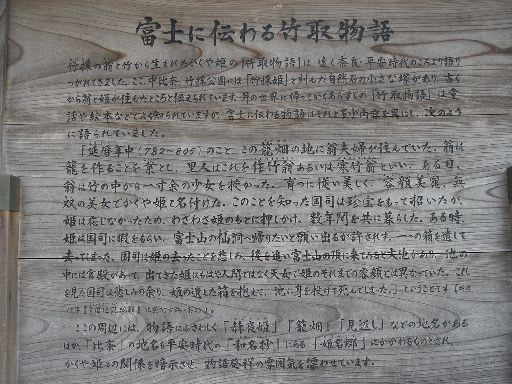 富士に伝わる竹取物語
竹採の翁と竹から生まれたかぐや姫の「竹取物語」は遠く奈良・平安時代のころより語り
つがれてきました。ここ中比奈、竹採公園には「竹採姫」と刻んだ自然石の小さな塔があり、古く
から翁と姫が住んだところと伝えられています。月の世界に帰っていくあらすじの「竹取物語」は童
話や絵本などでよく知られていますが、富士に伝わる物語はそれと多少内容を異にし、次のよう
に語られていました。
「延暦年中(782〜805)のこと、この籠畑の地に翁夫婦が住んでいた。翁は
籠を作ることを業とし、里人はこれを作竹翁あるいは寒竹翁といい、ある日、
翁は竹の中から一寸余の少女を授かった。育つに従い美しく、容顔美麗、無
双の美女でかぐや姫と名付けた。このことを知った国司は珍宝をもって招いたが、
姫は応じなかったため、わざわざ姫のもとに押しかけ、数年間を共に暮らした。ある時、
姫は国司に暇をもらい、富士山の仙洞へ帰りたいと願い出るが許されず、一つの箱を遺して
去ってしまった。国司は姫の去ったことを悲しみ、後を追い富士山の頂に来てみると大池があり、池の
中には宮殿があって、出てきた姫はもはや人間ではなく天女で姫のそれまでの容顔とは異なっていた。これ
を見た国司は悲しみの余り、姫の遺した箱を抱えて、池に身を投げて死んでしまった。」ということです
この周辺には、物語にふさわしく「赫夜姫」「籠畑」「見返し」などの地名がある
ほか、「比奈」の地名も平安時代の「和名抄」にある「姫名郷」にかかわるものとされ、
かぐや姫との関係を暗示させ、物語発祥の雰囲気を漂わせています。